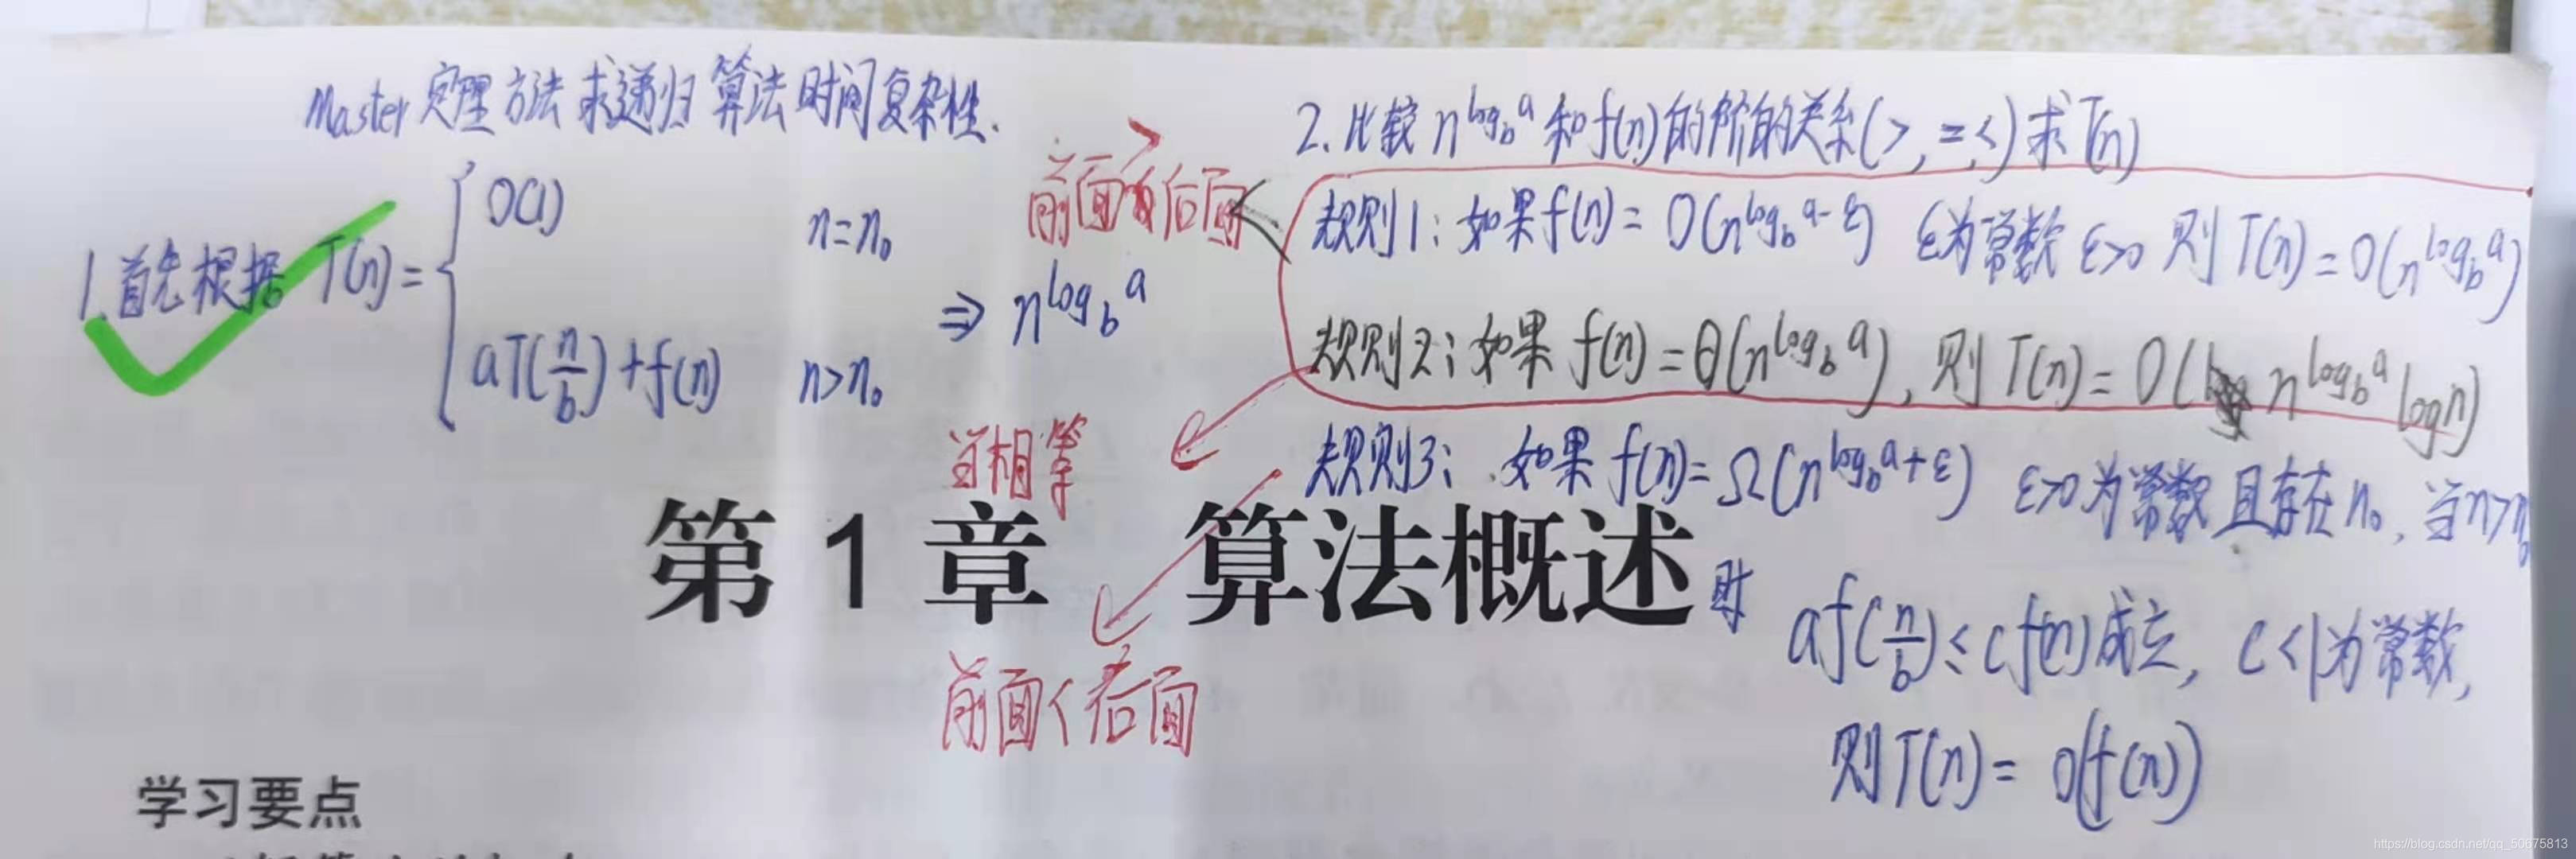 Master 定理方法求递归算法时间复杂性.
1.首先根据 T(n) = { O(1) n=n₀
aT(n/b)+f(n) n>n₀
⇒ n^log_b a
2. 比较 n^log_b a 和f(n)的阶的关系(>,=,<)求T(n)
前面>后面
规则1: 如果f(n) = O(n^log_b a-ε) ε为常数 ε>0 则 T(n) = O(n^log_b a)
规则2: 如果 f(n) = θ(n^log_b a), 则 T(n) = O(n^log_b a logn)
当相等
规则3: 如果 f(n) = Ω(n^log_b a+ε) ε>0为常数且存在n₀, 当n>n₀
时 af(n/b) ≤ cf(n)成立, c<1为常数,
前面<后面
则T(n) = O(f(n))
第1章 算法概述
学习要点
https://blog.csdn.net/qq_50675813